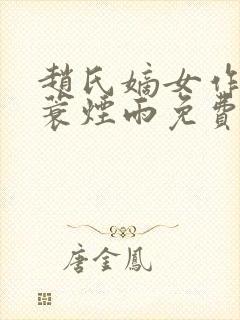 趙氏嫡女作
蓑煙雨免費
唐金鳳